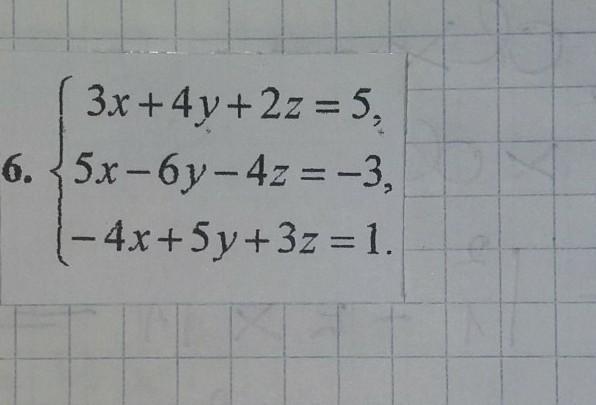 3x + 4y + 2z = 5,
6. 5x − 6y − 4z = −3,
−4x + 5y + 3z = 1.